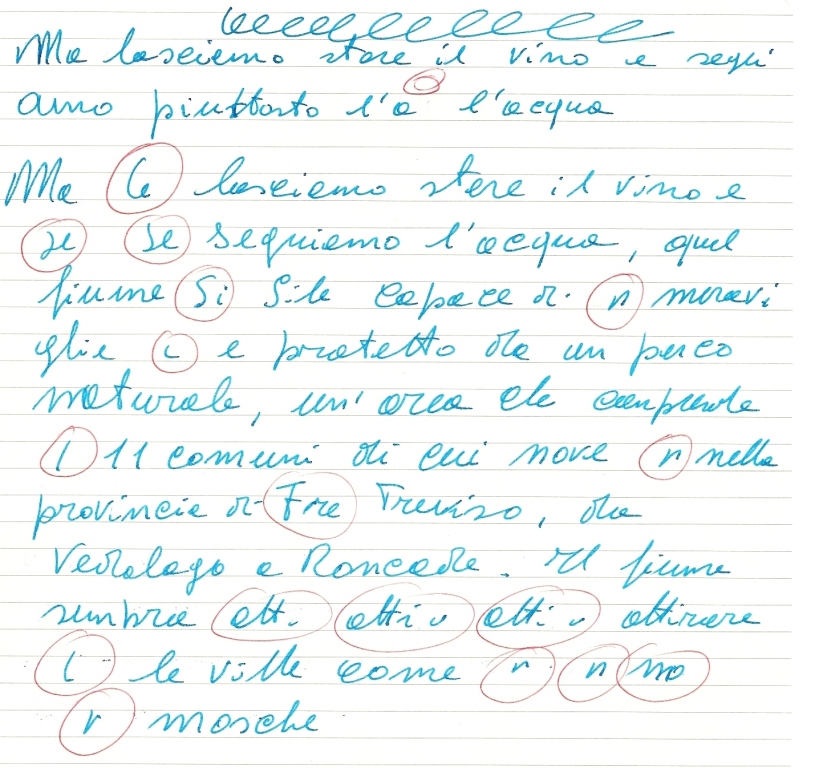 Ma lasciamo stare il vino e segui
amo piuttosto l'a l'acqua
Ma la lasciamo stare il vino e
se se seguiamo l'acqua, quel
fiume Si Sile capace di n meravi
glie c e protetto da un parco
naturale, un'area che comprende
l 11 comuni di cui nove n nella
provincia di Tre Treviso, da
Vedelago a Roncade. Il fiume
sembra att. atti atti attirare
l le ville come n n mo
r mosche